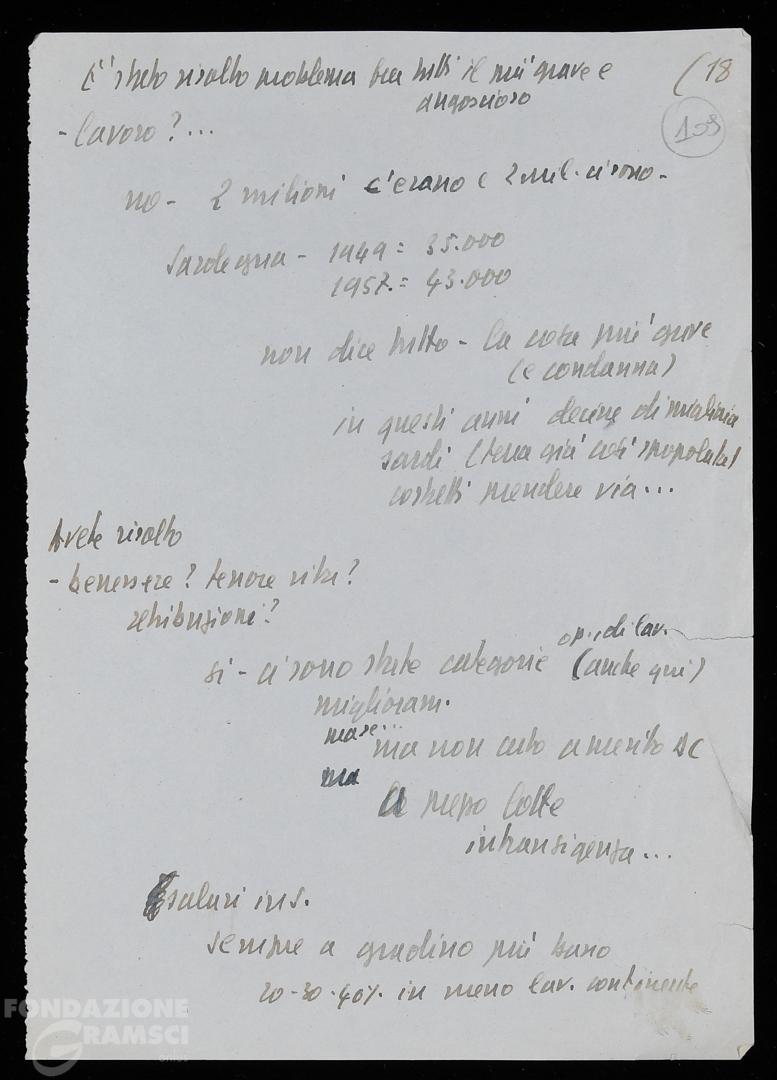 E' stato risolto problema tra tutti il più grave e (18
angoscioso
109
- lavoro? ...
no - 2 milioni c'erano e 2 mil. ci sono -
Sardegna - 1949 = 35.000
1957. = 43.000
non dice tutto - la cosa più grave
(e condanna)
in questi anni decine di migliaia
sardi (terra già così spopolata)
costretti prendere via ...
Avete risolto
- benessere? tenore vita?
retribuzioni?
op. di lav.
si - ci sono state categorie (anche qui)
miglioram.
ma non certo a merito DC
ma
a mezzo lotte
intransigenza ...
salari ins.
sempre a gradino più basso
20-30-40% in meno lav. continente
FONDAZIONE
GRAMSCI
onlus